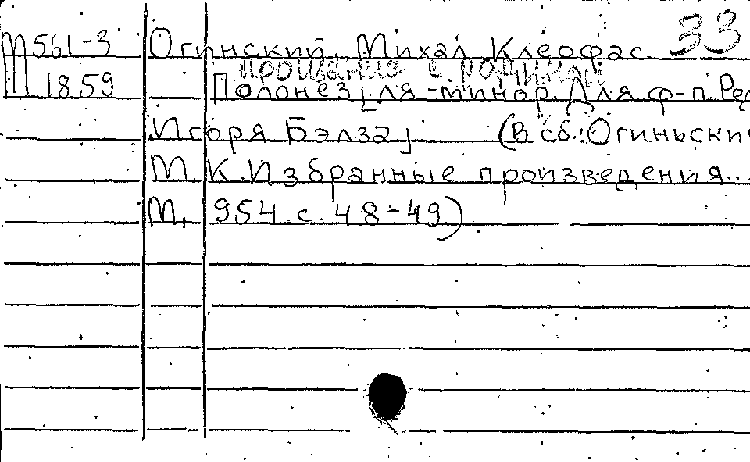 М561-3 Огинский, Михал Клеофас 33
прощание с родиной
М 1859 Полонез ля-минор. Для ф-п. Ред
Игоря Бэлза] (В сб.: Огиньский
М.К. Избранные произведения...
М., 954. с. 48-49)